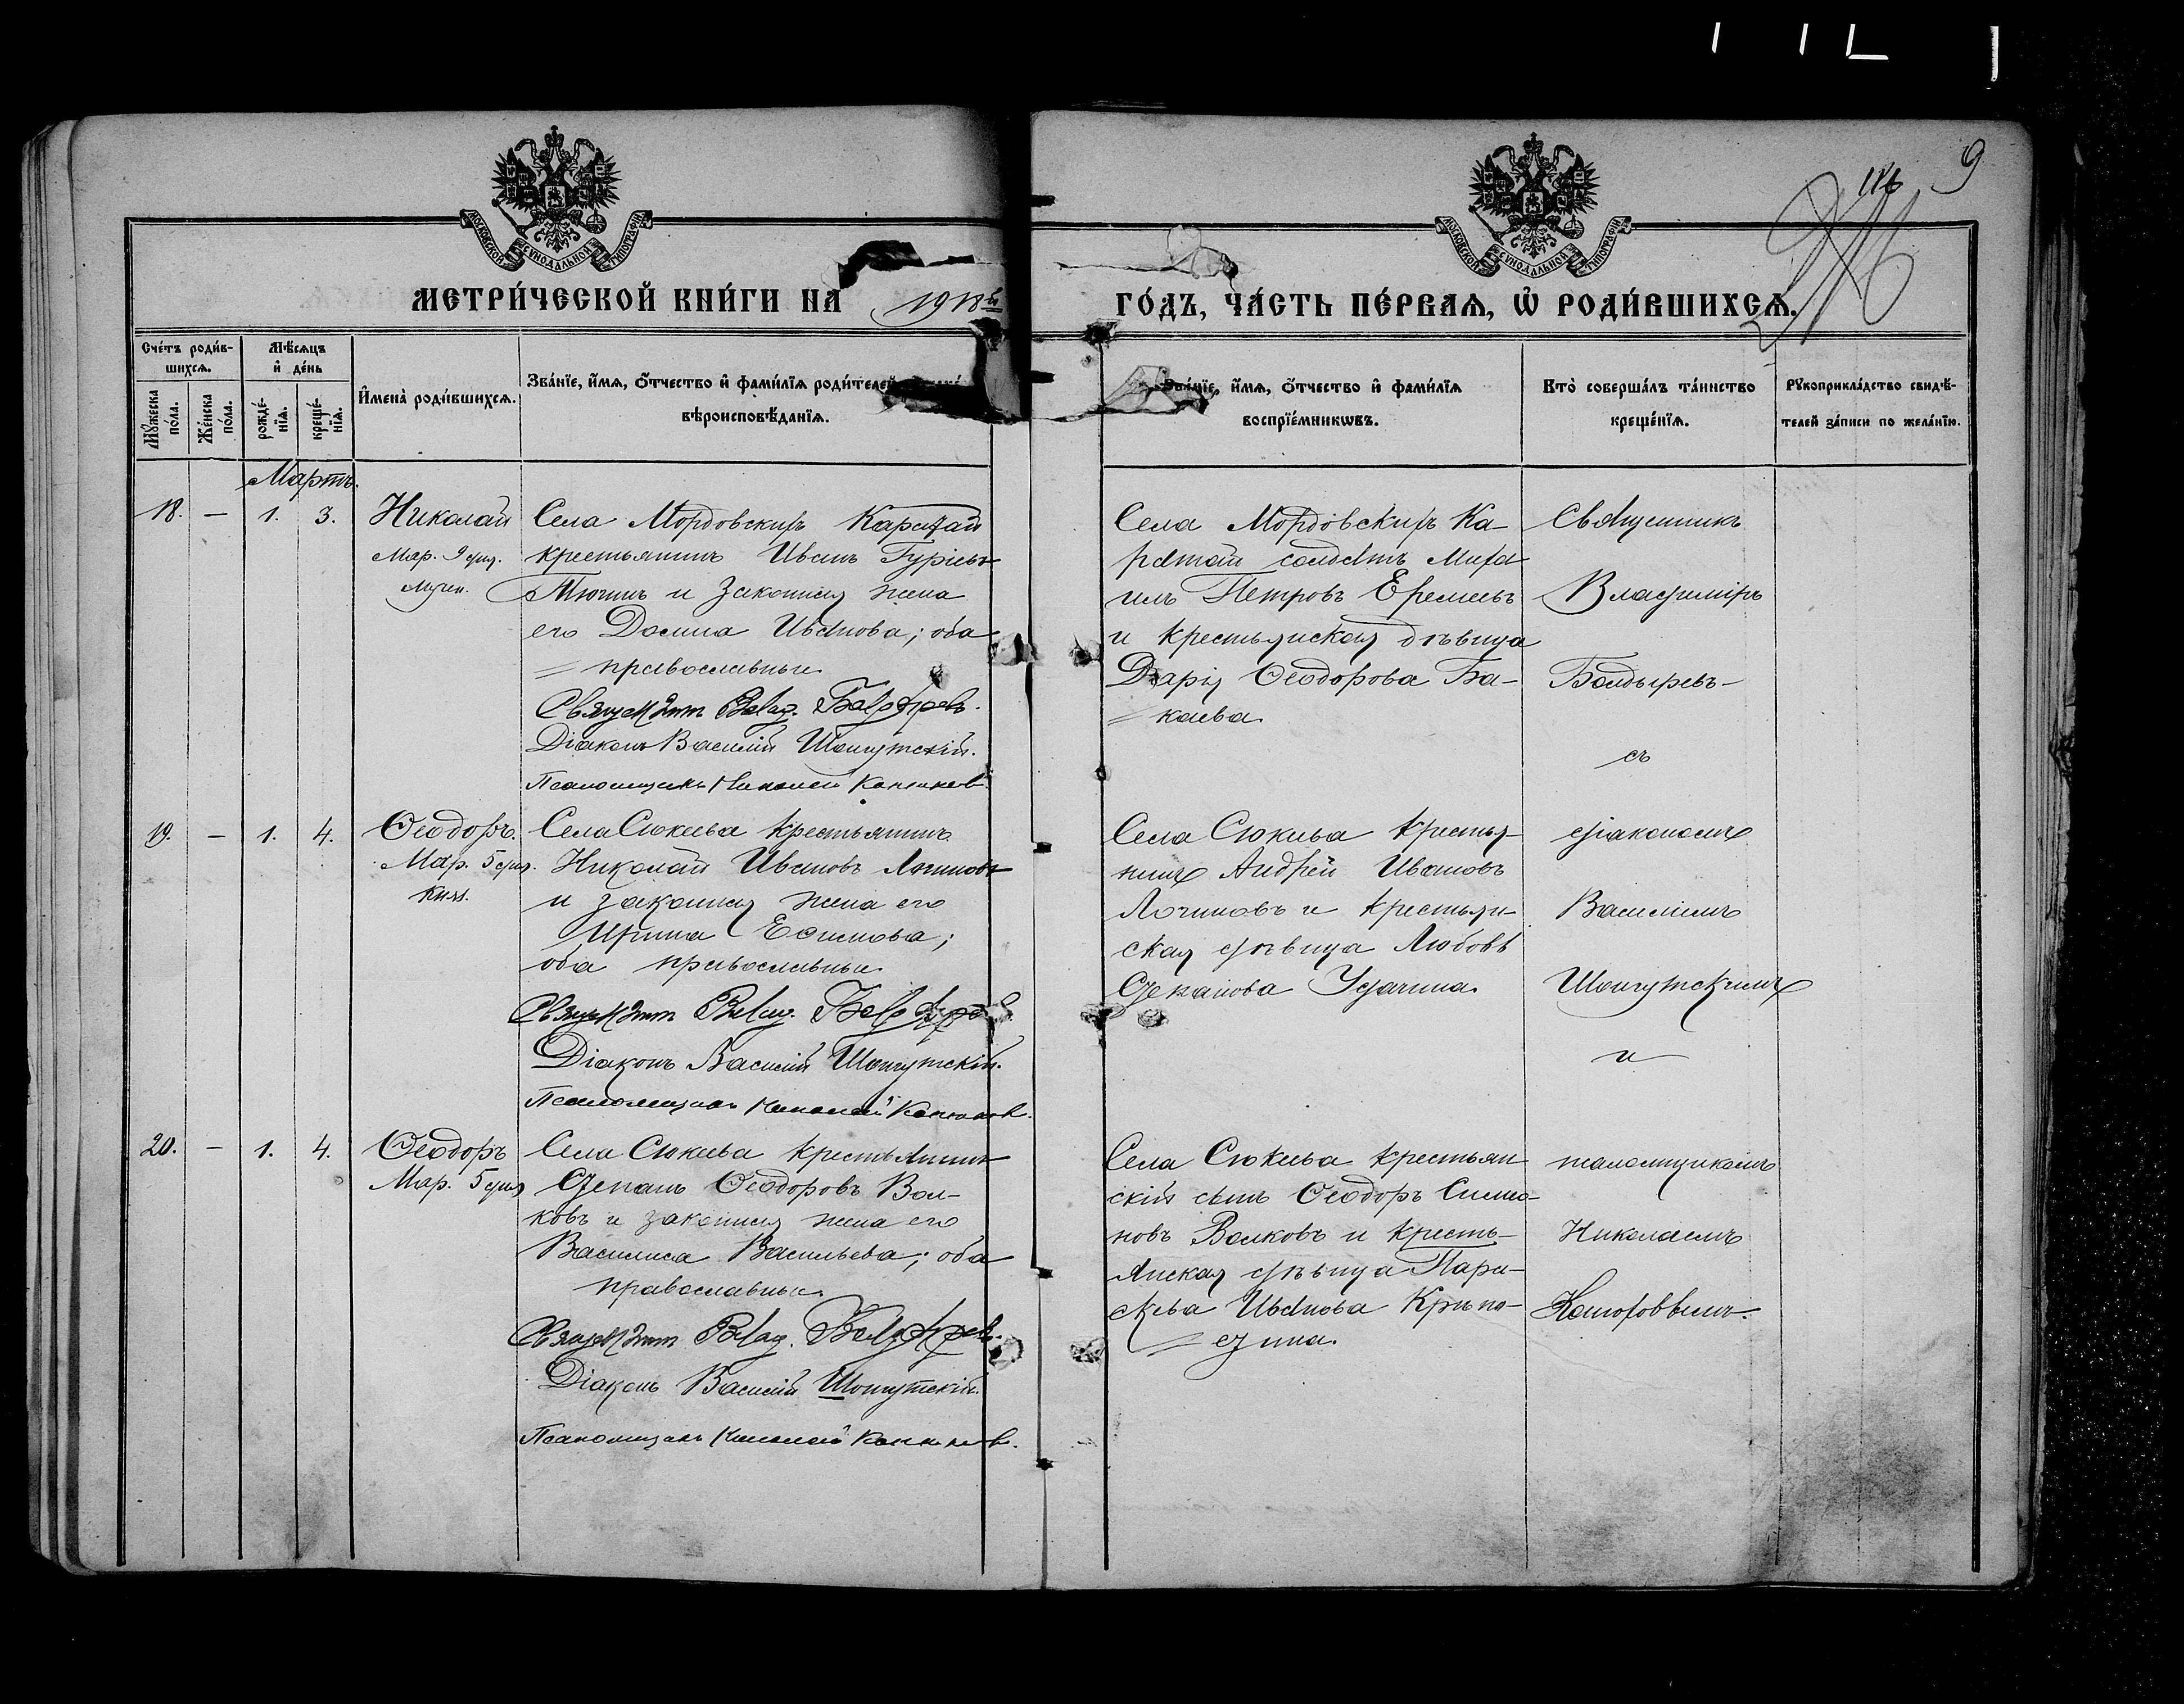 116 9
МОСКОВСКОЙ СУНОДАЛЬНОЙ ТИПОГРАФІИ
МОСКОВСКОЙ СУНОДАЛЬНОЙ ТИПОГРАФІИ
МЕТРИ́ЧЕСКОЙ КНИ́ГИ НА 1918й
ГО́ДЪ, ЧА́СТЬ ПЕ́РВАѦ, Ѡ҆ РОДИ́ВШИХСѦ.
Сче́тъ роди́в-
шихсѧ.
Мꙋ́жеска по́ла.
Же́нска по́ла.
Мѣ́сѧцъ
и҆ де́нь
рожде́-нїѧ.
креще́-нїѧ.
И҆мена̀ роди́вшихсѧ.
Зва́нїе, и҆́мѧ, ѻ҆́тчество и҆ фами́лїѧ роди́телей
вѣроисповѣ́данїѧ.
Зва́нїе, и҆́мѧ, ѻ҆́тчество и҆ фами́лїѧ
воспрїе́мникѡвъ.
Кто̀ соверша́лъ та́инство
креще́нїѧ.
Рꙋкоприкла́дство свидѣ́-
телей за́писи по жела́нїю.
Мартъ.
18. — 1. 3.
Николай
Мар. 9 сущ.
мучен.
Села Мордовскихъ Каратай
крестьянинъ Иванъ Гурьевъ
и законная жена
его Домна Иванова; оба
православные
Священник Влад. Болдырев.
Діаконъ Василій Шонгутскій.
Псаломщикъ Николай
Села Мордовскихъ Ка-
ратай солдатъ Миха
илъ Петровъ Еремеевъ
и крестьянская дѣвица
Дарія Ѳеодорова Ба-
каева.
Священникъ
Владиміръ
Болдыревъ
съ
19. — 1. 4.
Ѳеодоръ.
Мар. 5 сущ.
княз.
Села Сюкеева крестьянинъ
Николай Ивановъ
и законная жена его
Ирина Ефимова;
оба православные
Священник Влад. Болдырев.
Діаконъ Василій Шонгутскій.
Псаломщикъ Николай
Села Сюкеева крестья-
нинъ Андрей Ивановъ
Логиновъ и крестьян-
ская дѣвица Любовь
Степанова Удачина.
діакономъ
Василіемъ
Шонгутскимъ
и
20. — 1. 4.
Ѳеодоръ
Мар. 5 сущ
Села Сюкеева крестьянинъ
Степанъ Ѳеодоровъ Вол-
ковъ и законная жена его
Василиса Васильева; оба
православные.
Священник Влад. Болдырев.
Діаконъ Василій Шонгутскій.
Псаломщикъ Николай
Села Сюкеева крестьян
скій сынъ Ѳеодоръ Симо-
новъ Волковъ и кресть-
янская дѣвица Пара-
скева Иванова
псаломщикомъ
Николаемъ